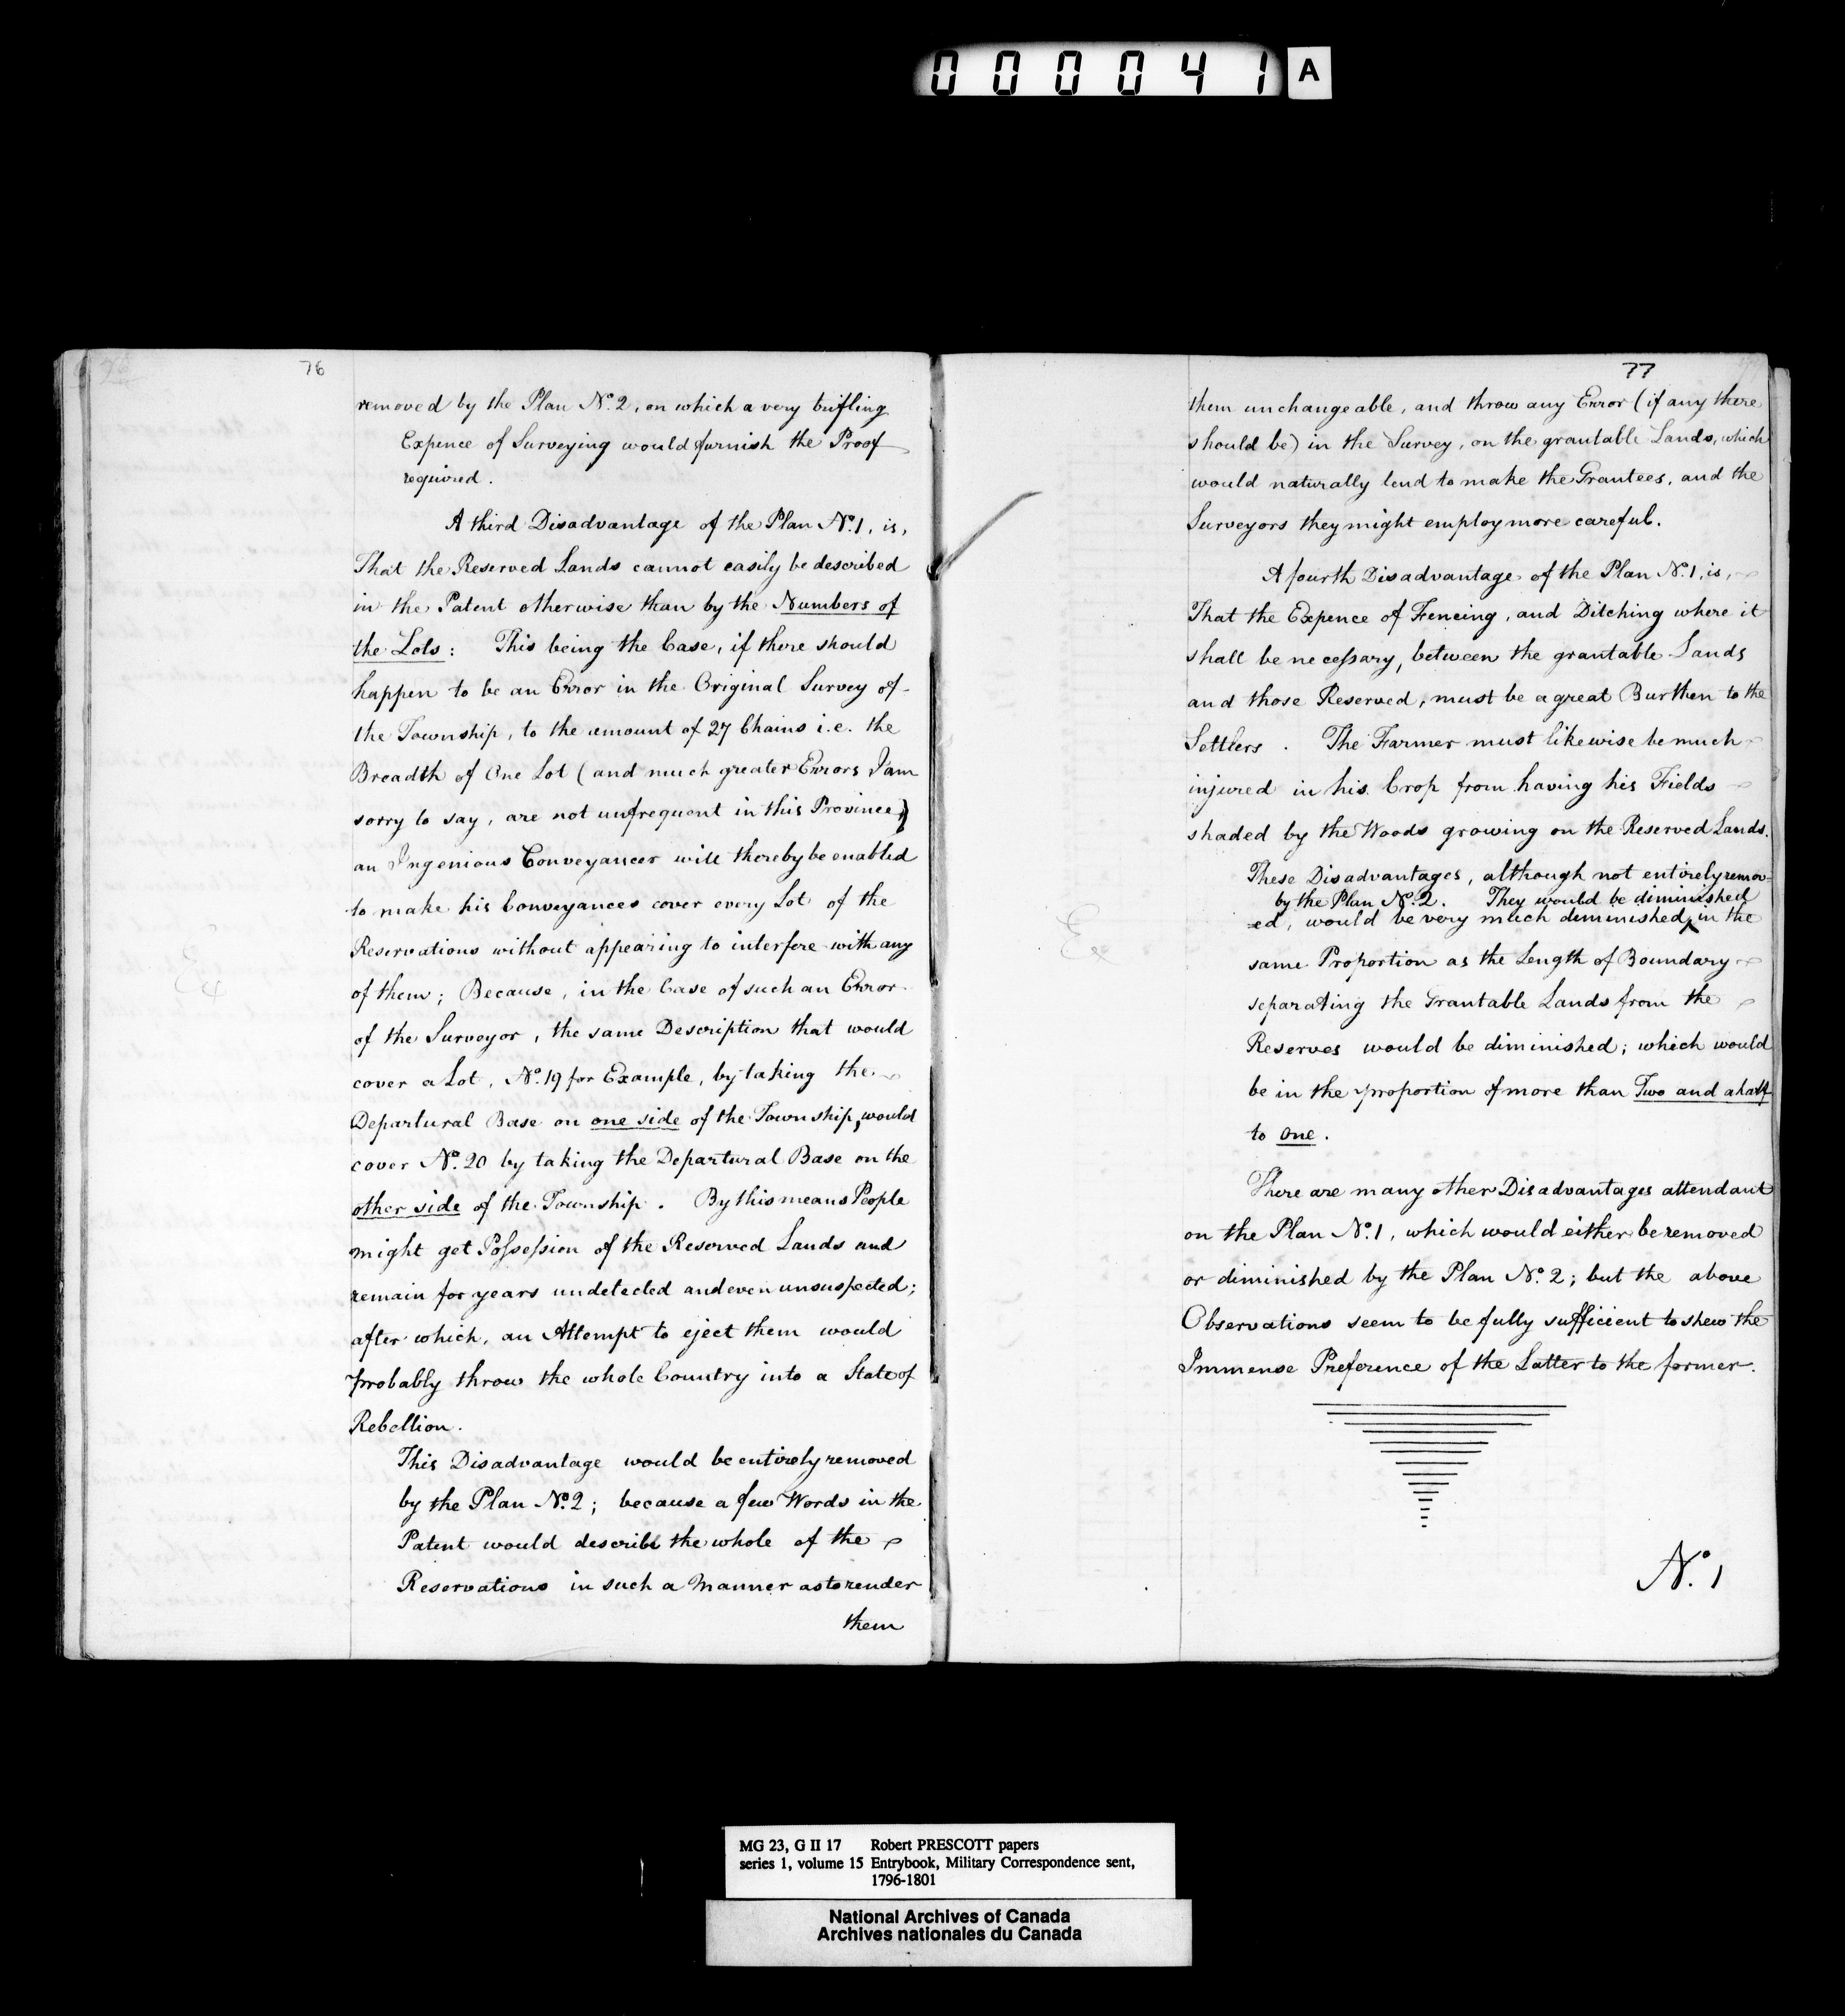 000041 A
76
removed by the Plan No. 2, on which a very trifling
Expence of Surveying would furnish the Proof
required.
A third Disadvantage of the Plan No. 1, is,
That the Reserved Lands cannot easily be described
in the Patent otherwise than by the Numbers of
the Lots: This being the Case, if there should
happen to be an Error in the Original Survey of
the Township, to the amount of 27 Chains i.e. the
Breadth of One Lot (and much greater Errors I am
sorry to say, are not unfrequent in this Province)
an Ingenious Conveyancer will thereby be enabled
to make his Conveyances cover every Lot of the
Reservations without appearing to interfere with any
of them; Because, in the Case of such an Error
of the Surveyor, the same Description that would
cover a Lot, No. 19 for Example, by taking the
Departural Base on one side of the Township, would
cover No. 20 by taking the Departural Base on the
other side of the Township. By this means People
might get Possession of the Reserved Lands and
remain for years undetected and even unsuspected;
after which, an Attempt to eject them would
probably throw the whole Country into a State of
Rebellion.
This Disadvantage would be entirely removed
by the Plan No. 2; because a few Words in the
Patent would describe the whole of the
Reservations in such a Manner as to render
them
77
them unchangeable, and throw any Error (if any there
should be) in the Survey, on the grantable Lands, which
would naturally tend to make the Grantees, and the
Surveyors they might employ more careful.
A fourth Disadvantage of the Plan No. 1, is,
That the Expence of Fencing, and Ditching where it
shall be necessary, between the grantable Lands
and those Reserved, must be a great Burthen to the
Settlers. The Farmer must likewise be much
injured in his Crop from having his Fields
shaded by the Woods growing on the Reserved Lands.
These Disadvantages, although not entirely remov-
by the Plan No. 2. They would be diminished
ed, would be very much diminished, in the
Ex
same Proportion as the Length of Boundary
separating the Grantable Lands from the
Reserves would be diminished; which would
be in the proportion of more than Two and a half
to One.
There are many other Disadvantages attendant
on the Plan No. 1, which would either be removed
or diminished by the Plan No. 2; but the above
Observations seem to be fully sufficient to shew the
Immense Preference of the Latter to the former.
No. 1
MG 23, G II 17 Robert PRESCOTT papers
series 1, volume 15 Entrybook, Military Correspondence sent,
1796-1801
National Archives of Canada
Archives nationales du Canada